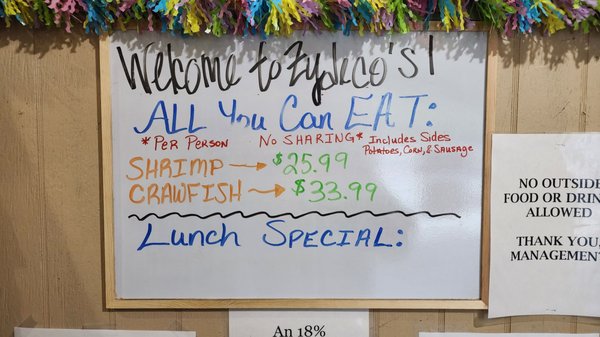 Welcome to Zydeco's!
ALL You Can EAT:
*PER PERSON NO SHARING* Includes Sides
POTATOES, CORN, & SAUSAGE
SHRIMP → $25.99
CRAWFISH → $33.99
Lunch SPECIAL:
NO OUTSIDE
FOOD OR DRIN
ALLOWED
THANK YOU,
MANAGEMEN
An 18%